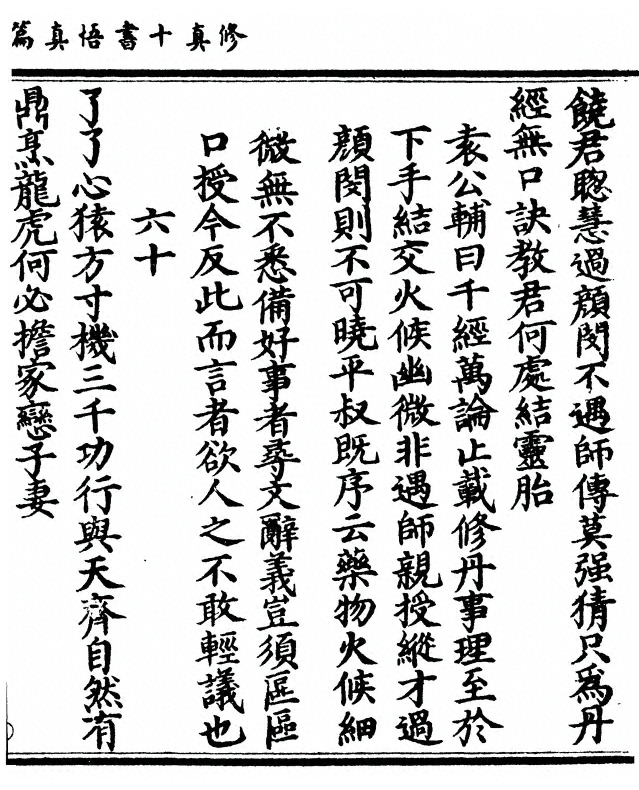 修真十書悟真篇
饒君聰慧過顔閔不遇師傳莫强猜只爲丹
經無口訣教君何處結靈胎
袁公輔曰千經萬論止載修丹事理至於
下手結交火候幽微非遇師親授縱才過
顔閔則不可曉平叔既序云藥物火候細
微無不悉備好事者尋文辭義豈須區區
口授今反此而言者欲人之不敢輕議也
六十
了了心猿方寸機三千功行與天齊自然有
鼎烹龍虎何必擔家戀子妻